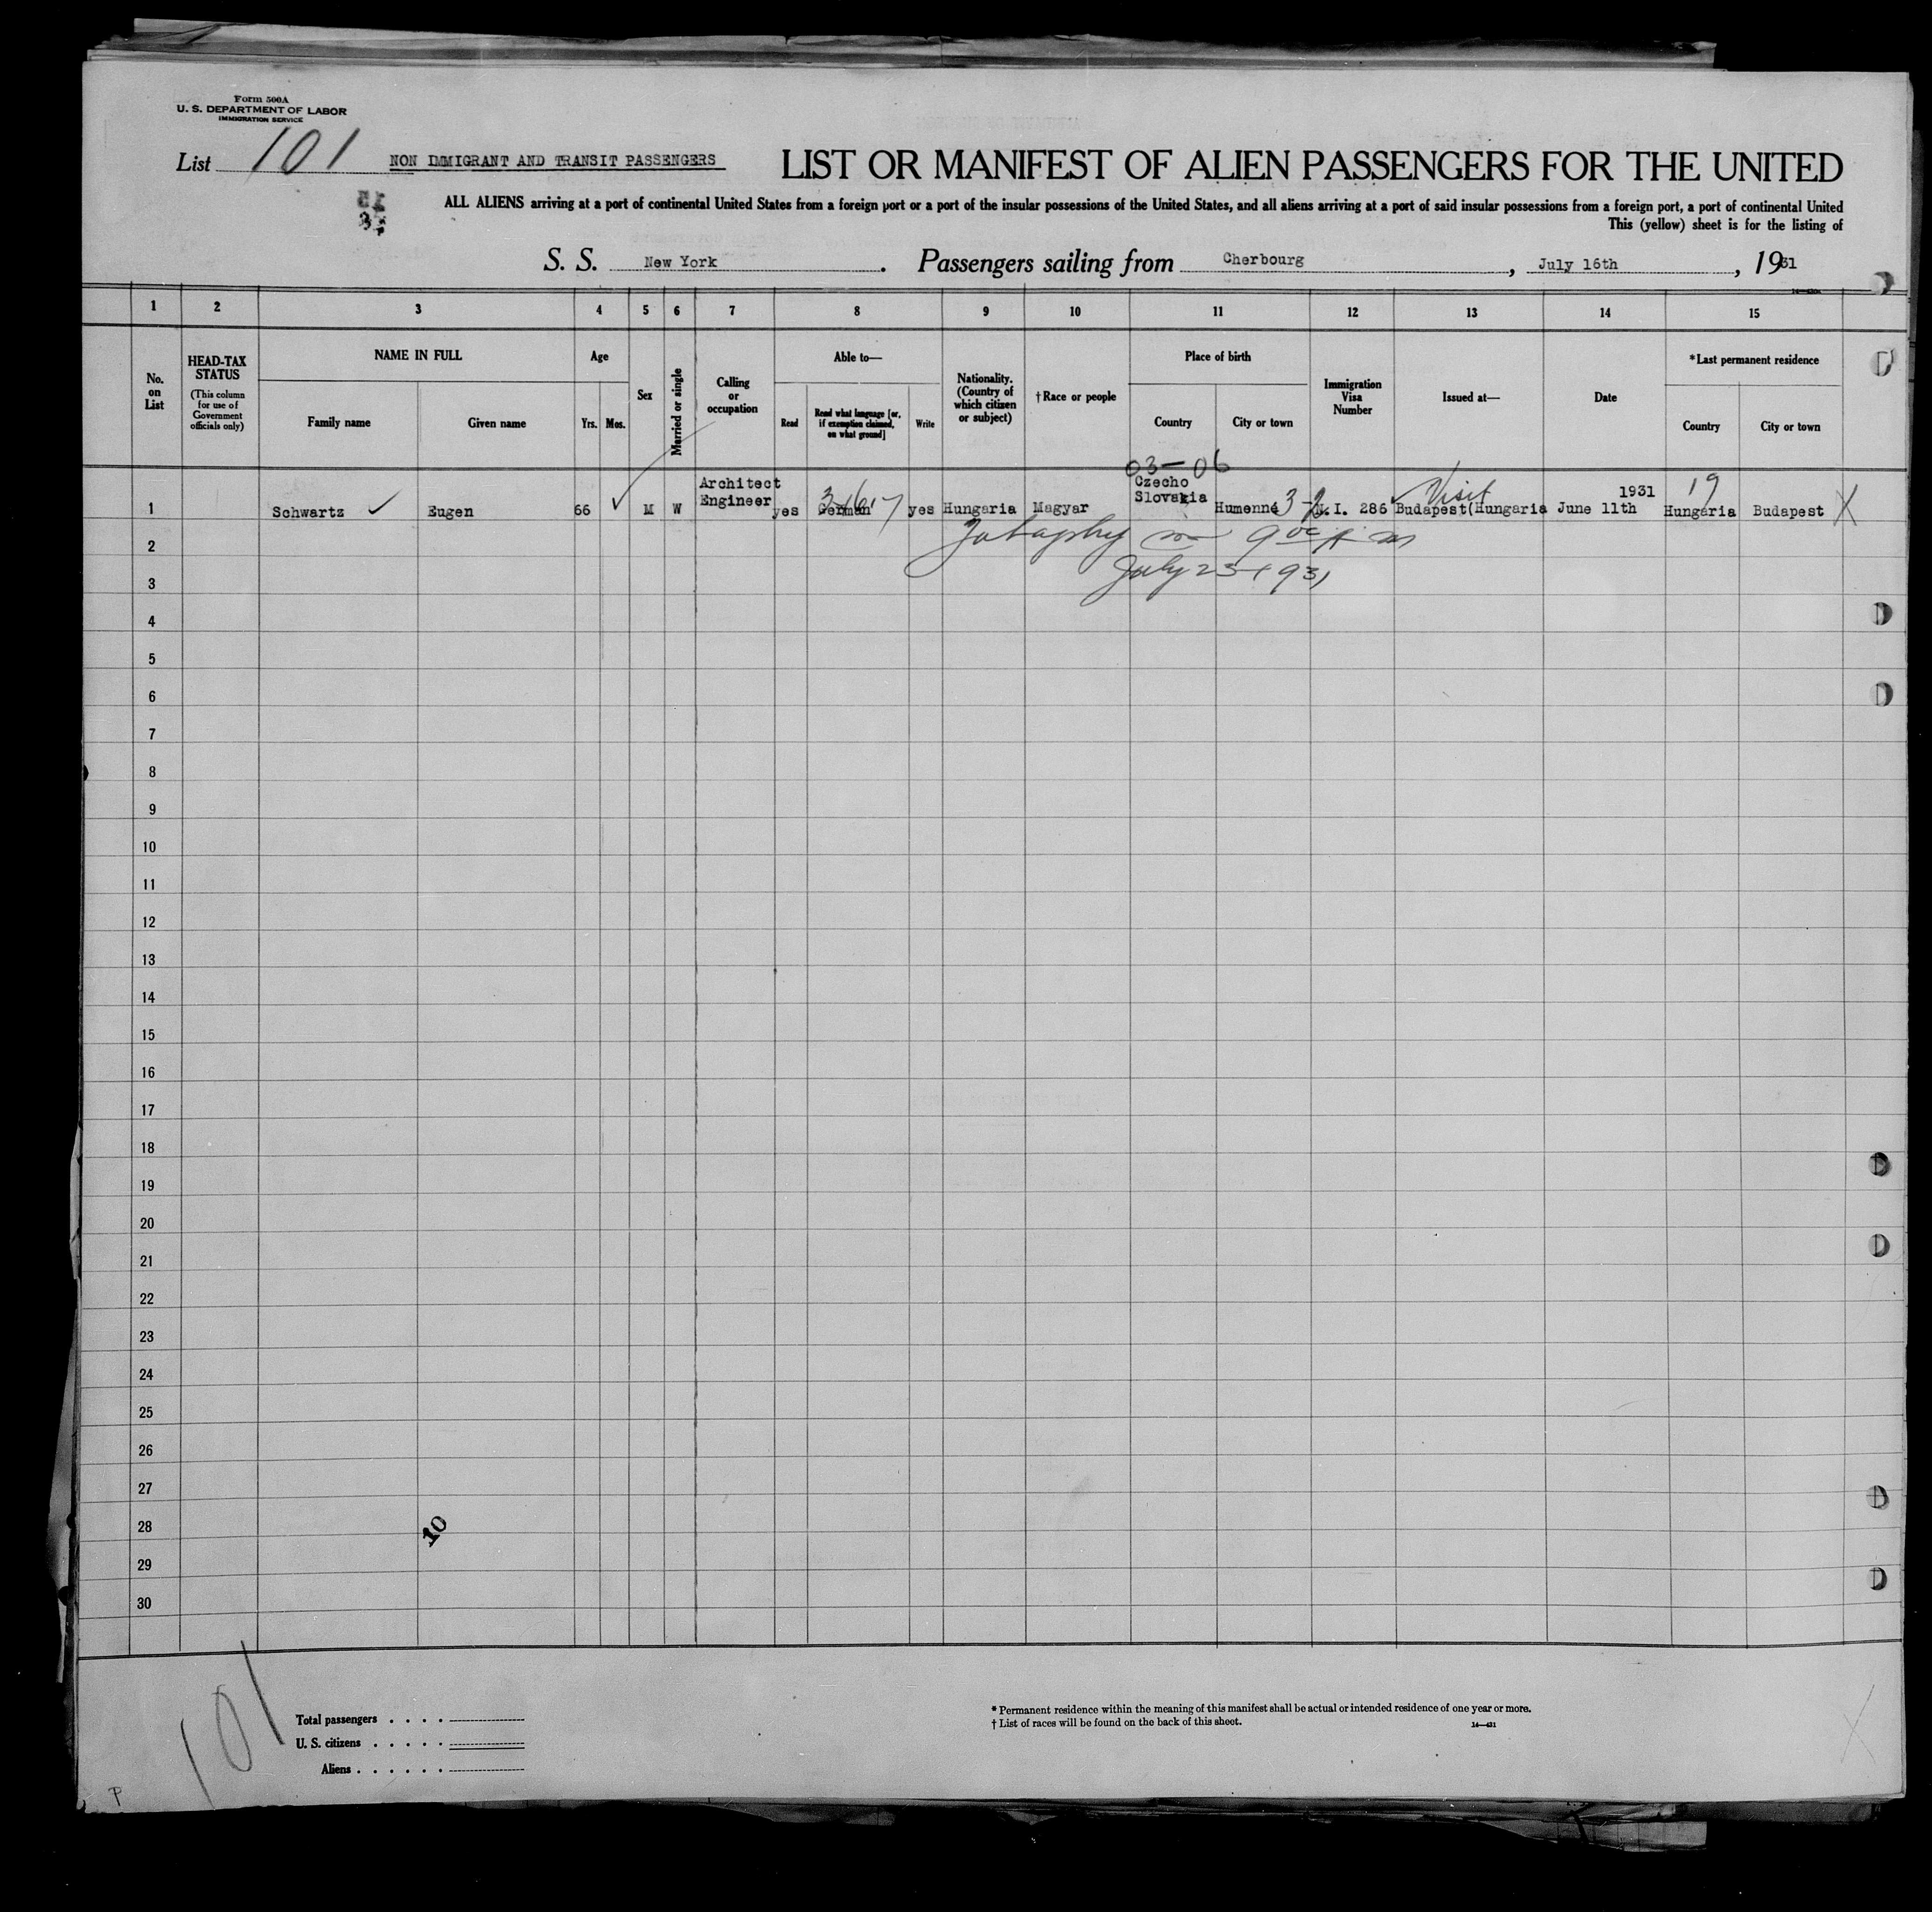 Form 500A
U. S. DEPARTMENT OF LABOR
IMMIGRATION SERVICE
List 101
NON IMMIGRANT AND TRANSIT PASSENGERS
LIST OR MANIFEST OF ALIEN PASSENGERS FOR THE UNITED
ALL ALIENS arriving at a port of continental United States from a foreign port or a port of the insular possessions of the United States, and all aliens arriving at a port of said insular possessions from a foreign port, a port of continental United
This (yellow) sheet is for the listing of
S. S. New York. Passengers sailing from Cherbourg, July 16th, 1931
1 2 3 4 5 6 7 8 9 10 11 12 13 14 15
No. on List
HEAD-TAX STATUS
(This column for use of Government officials only)
NAME IN FULL
Family name
Given name
Age
Yrs.
Mos.
Sex
Married or single
Calling or occupation
Able to—
Read
Read what language [or, if exemption claimed, on what ground]
Write
Nationality. (Country of which citizen or subject)
† Race or people
Place of birth
Country
City or town
Immigration Visa Number
Issued at—
Date
*Last permanent residence
Country
City or town
03-06
1 Schwartz Eugen 66 M W Architect Engineer yes German yes Hungaria Magyar Czecho Slovakia Humenné I. 286 Budapest(Hungaria June 11th 1931 Hungaria Budapest X
Visit
19
July 23 1931
2
3
4
5
6
7
8
9
10
11
12
13
14
15
16
17
18
19
20
21
22
23
24
25
26
27
28
29
30
10
101
Total passengers . . . .
U. S. citizens . . . . .
Aliens . . . . . .
* Permanent residence within the meaning of this manifest shall be actual or intended residence of one year or more.
† List of races will be found on the back of this sheet.
14—431